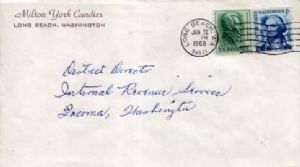 Milton York Candies
LONG BEACH, WASHINGTON
LONG BEACH, WA
JUN
PM
1968
98631
District Director
Internal Revenue Service
Tacoma, Washington